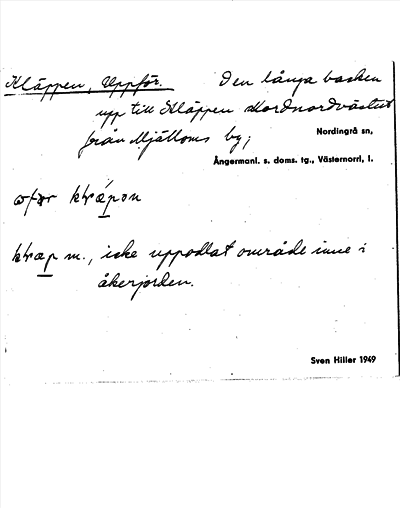 Kläppen, Uppför. Den långa backen
upp till Kläppen nordnordväst
från Mjälloms by;
Nordingrå sn,
Ångermanl. s. doms. tg., Västernorrl. l.
m., icke uppodlat område inne i
åkerjorden.
Sven Hiller 1949